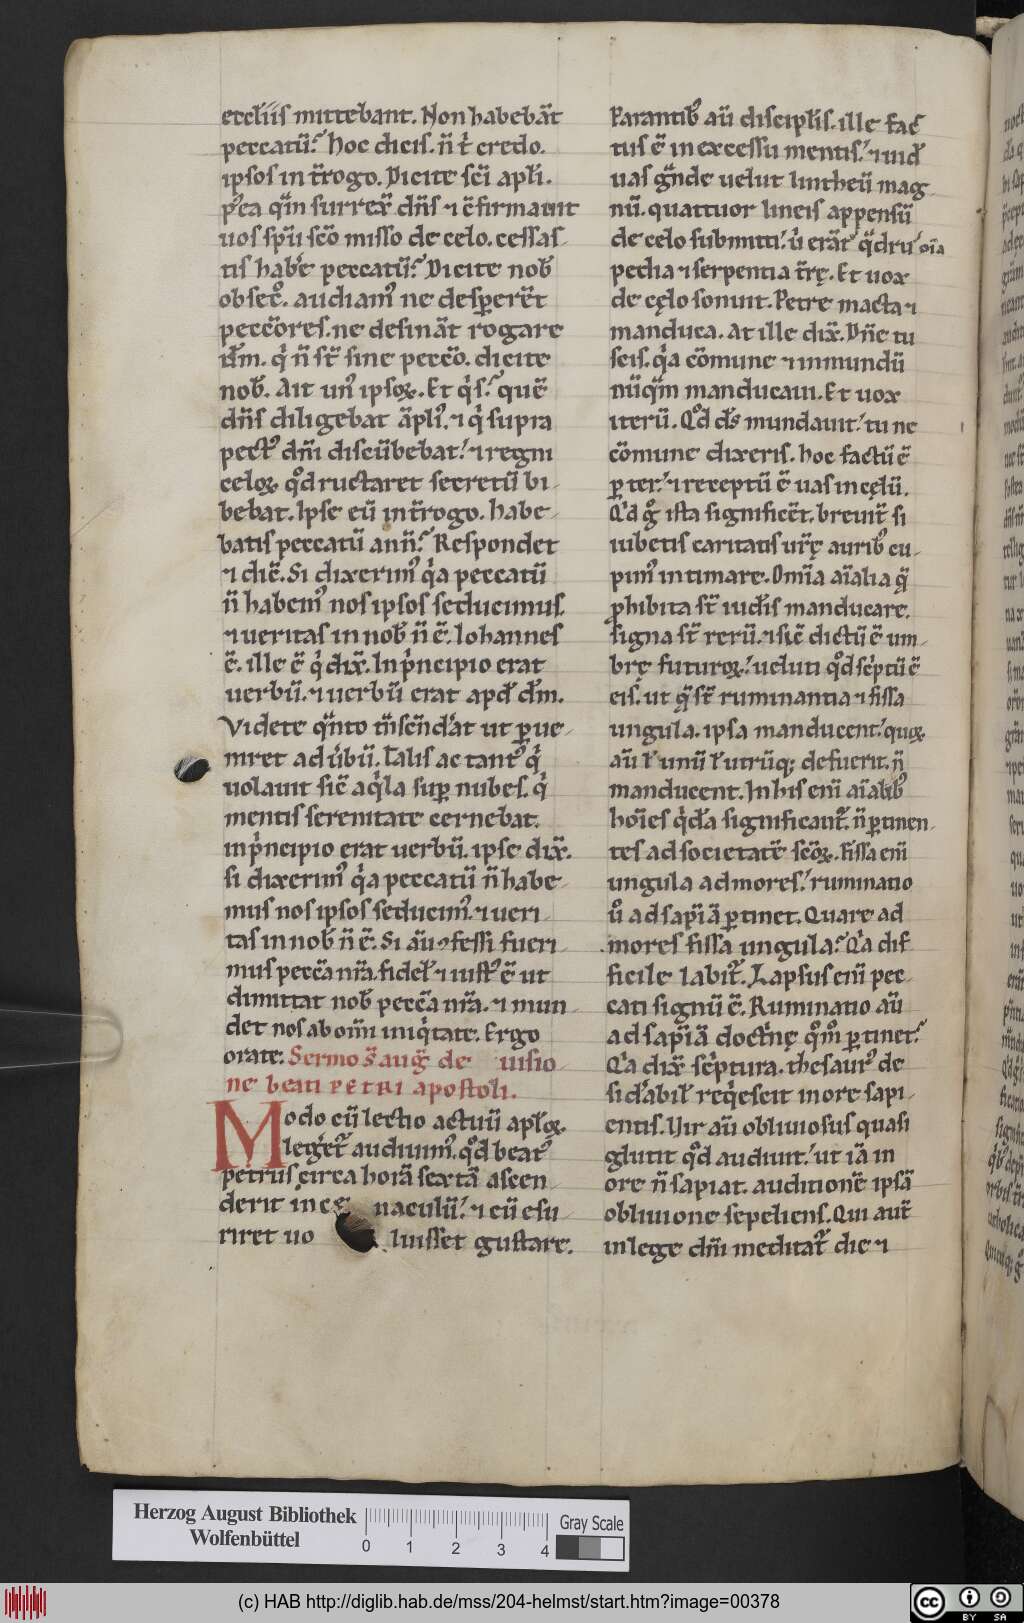 eccl̃iis mittebant. Non habebãt
peccatũ? hoc dicis. ñ t̾ credo.
ipsos int̃rogo. Dicite sc̃i apl̃i.
p̾ea qm̃ surrex̃ dñs ⁊ c̃firmauit
uos sp̃u sc̃o misso de celo. cessas
tis hab̾e peccatũ? Dicite nob̾
obsec̾. audiam᾽ ne desperẽt
pecc̃ores. ne desinãt rogare
d̾m. q̾ ñ st̃ sine pecc̃o. dicite
nob̾. Ait un᾽ ipsoꝝ. Et q̾s? quẽ
dñs diligebat ap̃lis᾽. ⁊ q̾ supra
pect᾽ dñi discũbebat. ⁊ regni
celoꝝ qd̾ ructaret secretũ bi
bebat. Ipse eũ int̃rogo. habe
batis peccatũ an ñ? Respondet
⁊ dic̃. Si dixerim᾽ q̾a peccatũ
ñ habem᾽ nos ipsos seducimus.
⁊ ueritas in nob̾ ñ ẽ. Iohannes
ẽ. ille ẽ q̾ dix̃. In p̾ncipio erat
uerbũ. ⁊ uerbũ erat apd̾ d̾m.
Videte q̃nto t̃nscẽd̾at ut ꝑue
niret ad u̾bũ. Talis ac tant᾽ q̾
uolauit sic̃ aq̾la suꝑ nubes. q̾
mentis serenitate cernebat.
in p̾ncipio erat uerbũ. ipse dix̃.
si dixerim᾽ q̾a peccatũ ñ habe
mus nos ipsos seducim᾽. ⁊ ueri
tas in nob̾ ñ ẽ. Si aũ ꝯfessi fueri
mus pecc̃a nr̃a. fidel̾ ⁊ iust᾽ ẽ ut
dimittat nob̾ pecc̃a nr̃a. ⁊ mun
det nos ab om̃i iniq̾tate. Ergo
orate. Sermo s̃ aug̃ de uisio
ne beati PETRI apostoli.
Modo cũ lectio actuũ apl̾oꝝ
leger̾et᾽ audiuim᾽. qd̾ beat᾽
petrus circa horã sextã ascen
derit in ce naculũ. ⁊ cũ esu
riret uo luisset gustare.
Parantib᾽ aũ discipl̾is. ille fac
tus ẽ in excessu mentis. ⁊ uid̾
uas g̃nde uelut lintheũ mag
nũ. quattuor lineis appensũ
de celo submitti. u̾ erãt q̃dru oĩa
pedia ⁊ serpentia t̃rę. Et uox
de cęlo sonuit. Petre macta ⁊
manduca. At ille dix̃. Dñe tu
scis. q̾a cõmune ⁊ inmundũ
nũq̃m manducaui. Et uox
iterũ. Qd̾ d̾s mundauit. tu ne
cõmune dixeris. hoc factũ ẽ
ꝑ ter. ⁊ receptũ ẽ uas in cęlũ.
Q̾d g̾ ista significẽt. breuit̾ si
iubetis caritatis ur̃ę aurib᾽ cu
pim᾽ intimare. Om̃ia aĩalia q̃
ꝓhibita st̃ iud̾is manducare.
signa st̃ rerũ. ⁊ sic̃ dictũ ẽ um
brę futuroꝝ. ueluti qd̾ sc̾ptũ ẽ
eis. ut q̃ st̃ ruminantia ⁊ fissa
ungula. ipsa manducent. quoꝝ
aũ l̾ unũ l̾ utrũq; defuerit. ñ
manducent. In his eni᷈ aĩalib᾽
hoĩes q̾d̾a significant᾽. ñ ꝑtinen
tes ad societatẽ sc̃oꝝ. Fissa eni᷈
ungula ad mores. ruminatio
u̾o ad sapĩã ꝑtinet. Quare ad
mores fissa ungula? Q̾a dif
ficile labit᾽. Lapsus eni᷈ pec
cati signũ ẽ. Ruminatio aũ
ad sapĩã doct̾nę qm̾o ꝑtinet?
Q̾a dix̃ sc̾ptura. thesaur᾽ de
sid̾abil̾ req̾escit in ore sapi
entis. Vir aũ obliuiosus quasi
glutit qd̾ audiuit. ut iã in
ore ñ sapiat. auditionẽ ipsã
obliuione sepeliens. Qui aut̃
in lege dñi meditat᾽ die ⁊
Herzog August Bibliothek
Wolfenbüttel
0 1 2 3 4
Gray Scale
(c) HAB http://diglib.hab.de/mss/204-helmst/start.htm?image=00378
cc BY SA